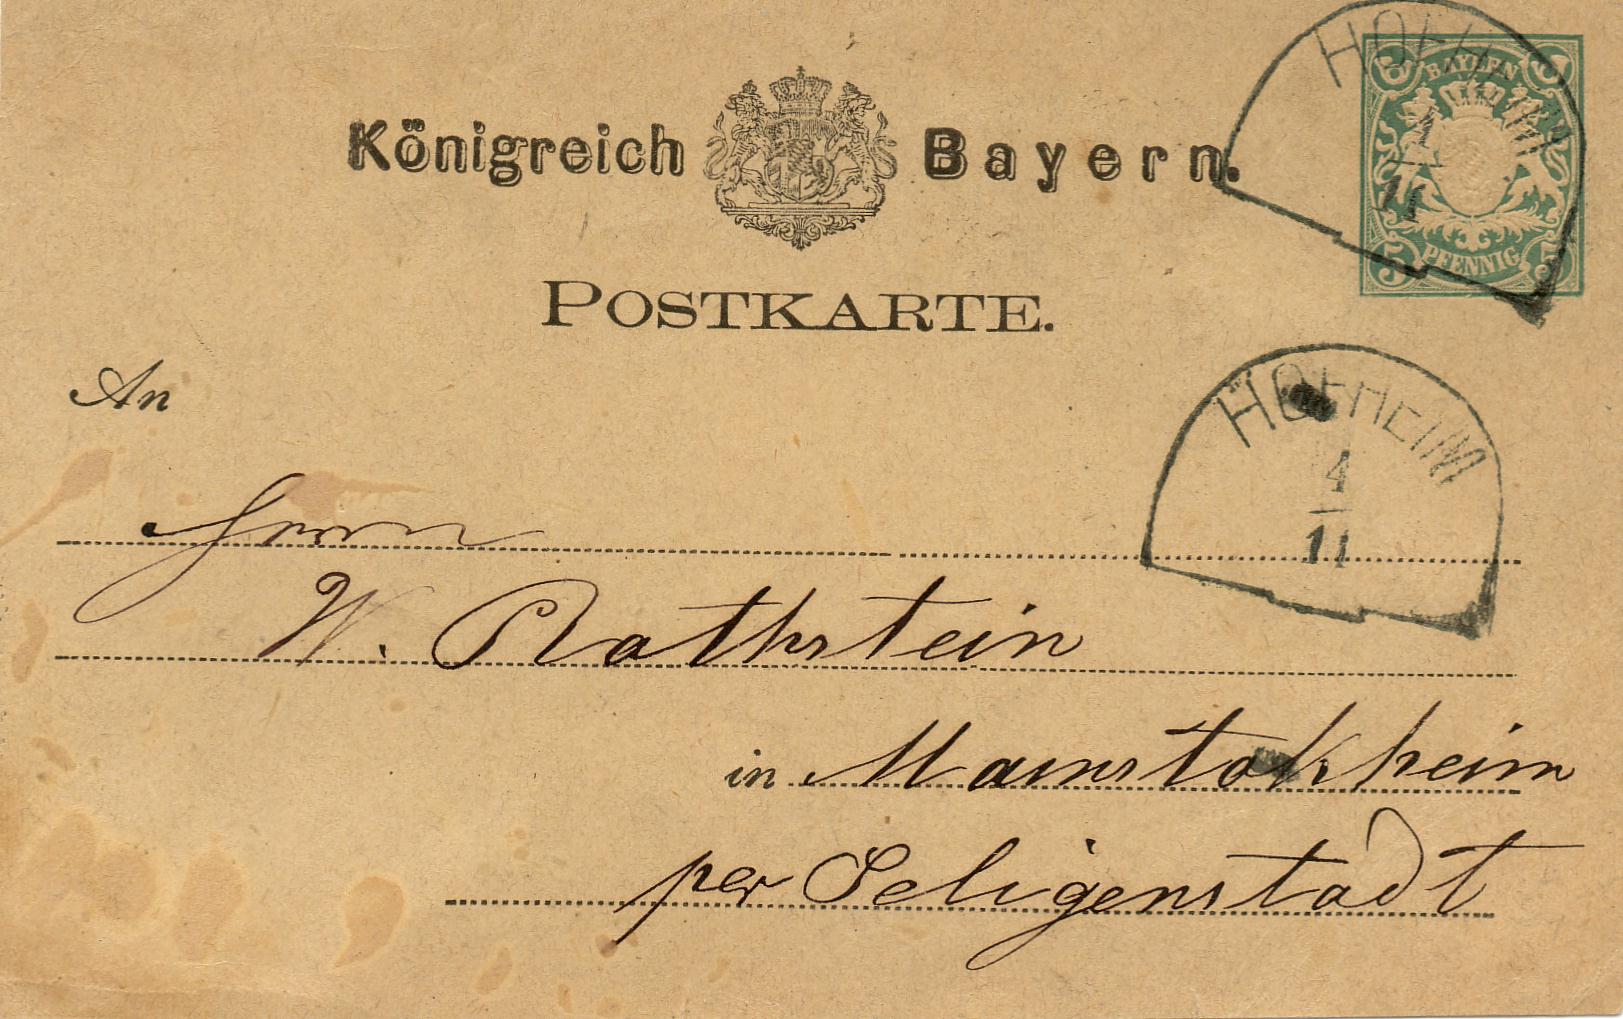 Königreich Bayern.
HOFHEIM
4
11
BAYERN
5 5
PFENNIG
POSTKARTE.
An
HOFHEIM
4
11
Herrn
W. Rothstein
in Mainstokheim
per Seligenstadt